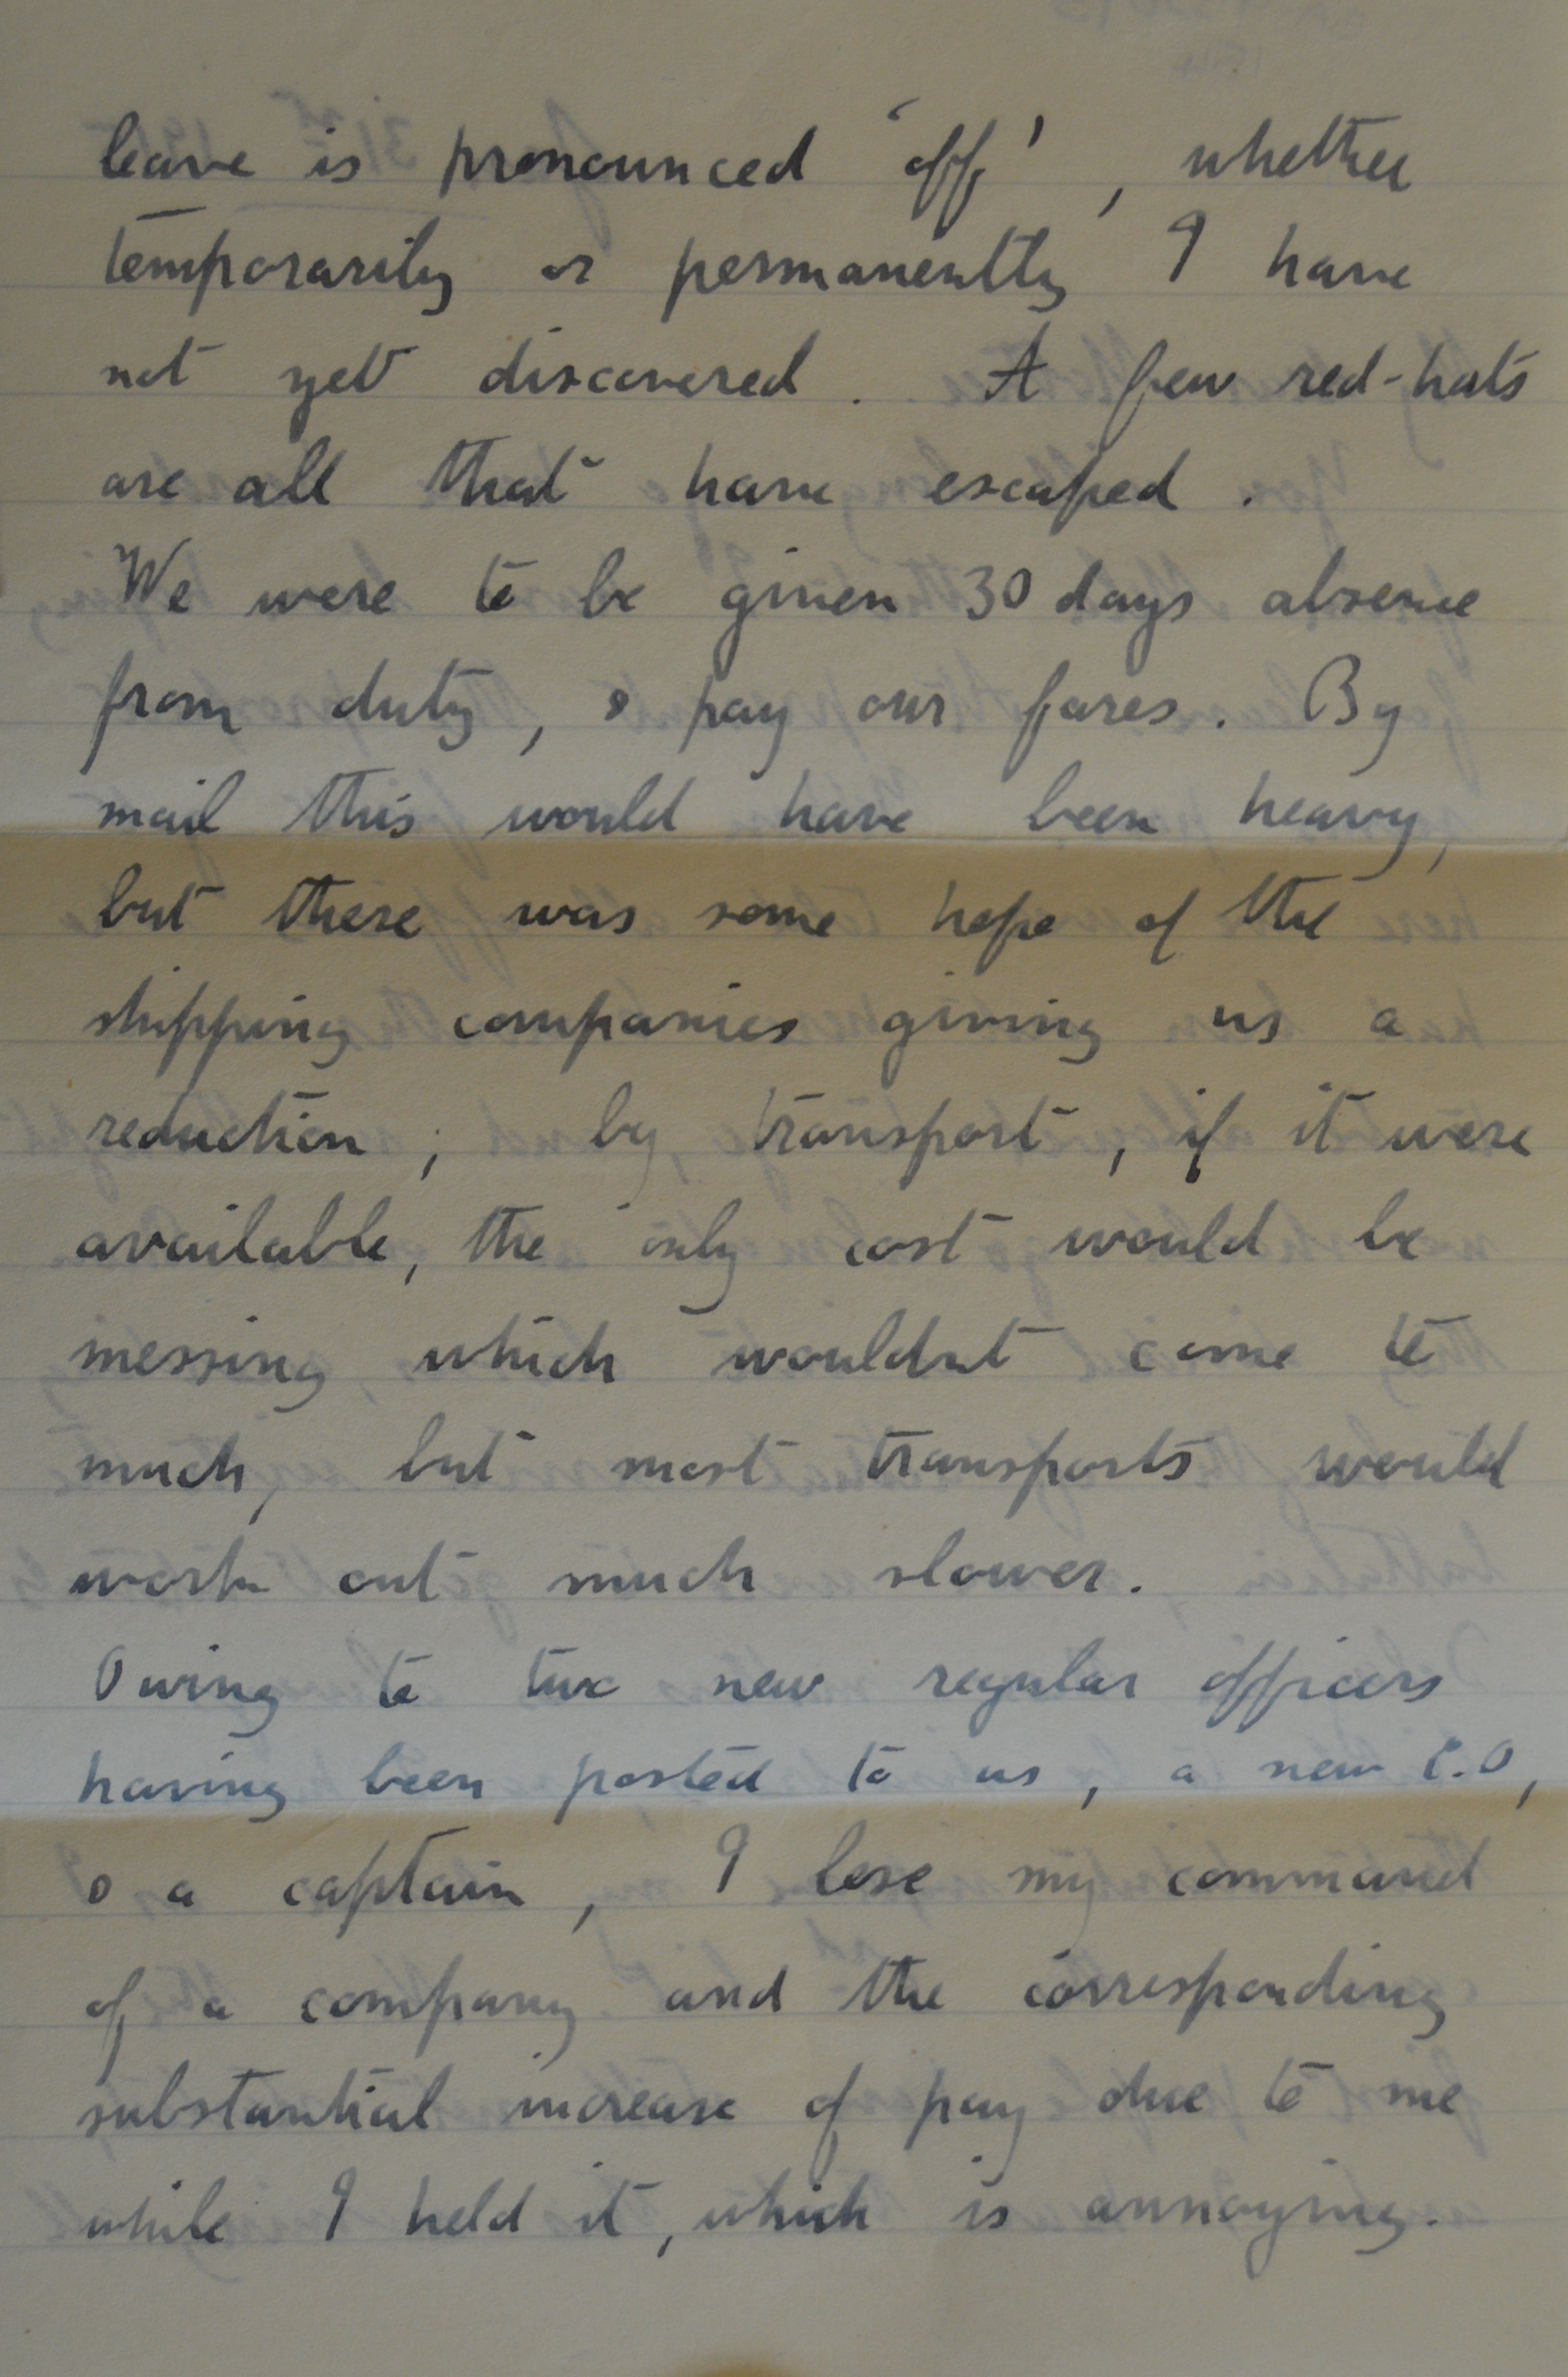 leave is pronounced 'off', whether
temporarily or permanently I have
not yet discovered. A few red-hats
are all that have escaped.
We were to be given 30 days absence
from duty, & pay our fares. By
mail this would have been heavy,
but there was some hope of the
shipping companies giving us a
reduction; by transport, if it were
available, the only cost would be
messing, which wouldnt come to
much, but most transports would
work out much slower.
Owing to two new regular officers
having been posted to us, a new C.O,
& a captain, I lose my command
of a company and the corresponding
substantial increase of pay due to me
while I held it, which is annoying.